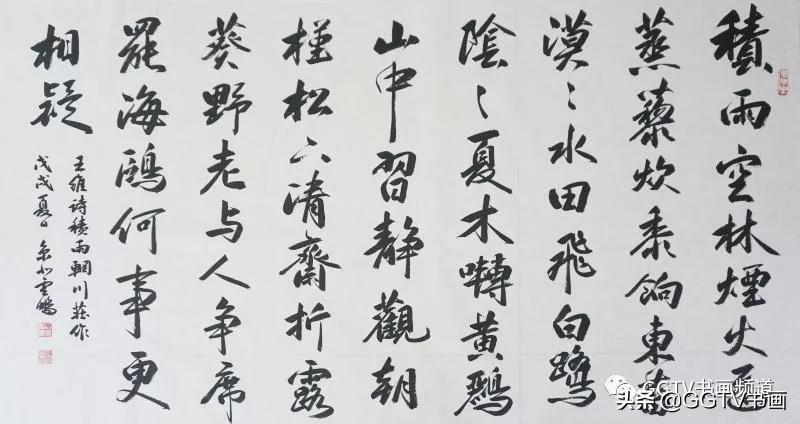 積雨空林煙火遲
蒸藜炊黍餉東菑
漠〻水田飛白鷺
陰〻夏木囀黄鸝
山中習靜觀朝
槿松下清齋折露
葵野老与人争席
罷海鷗何事更
相疑
王維诗積雨輞川莊作
戊戌夏
GGTV书画频道
头条@GGTV书画